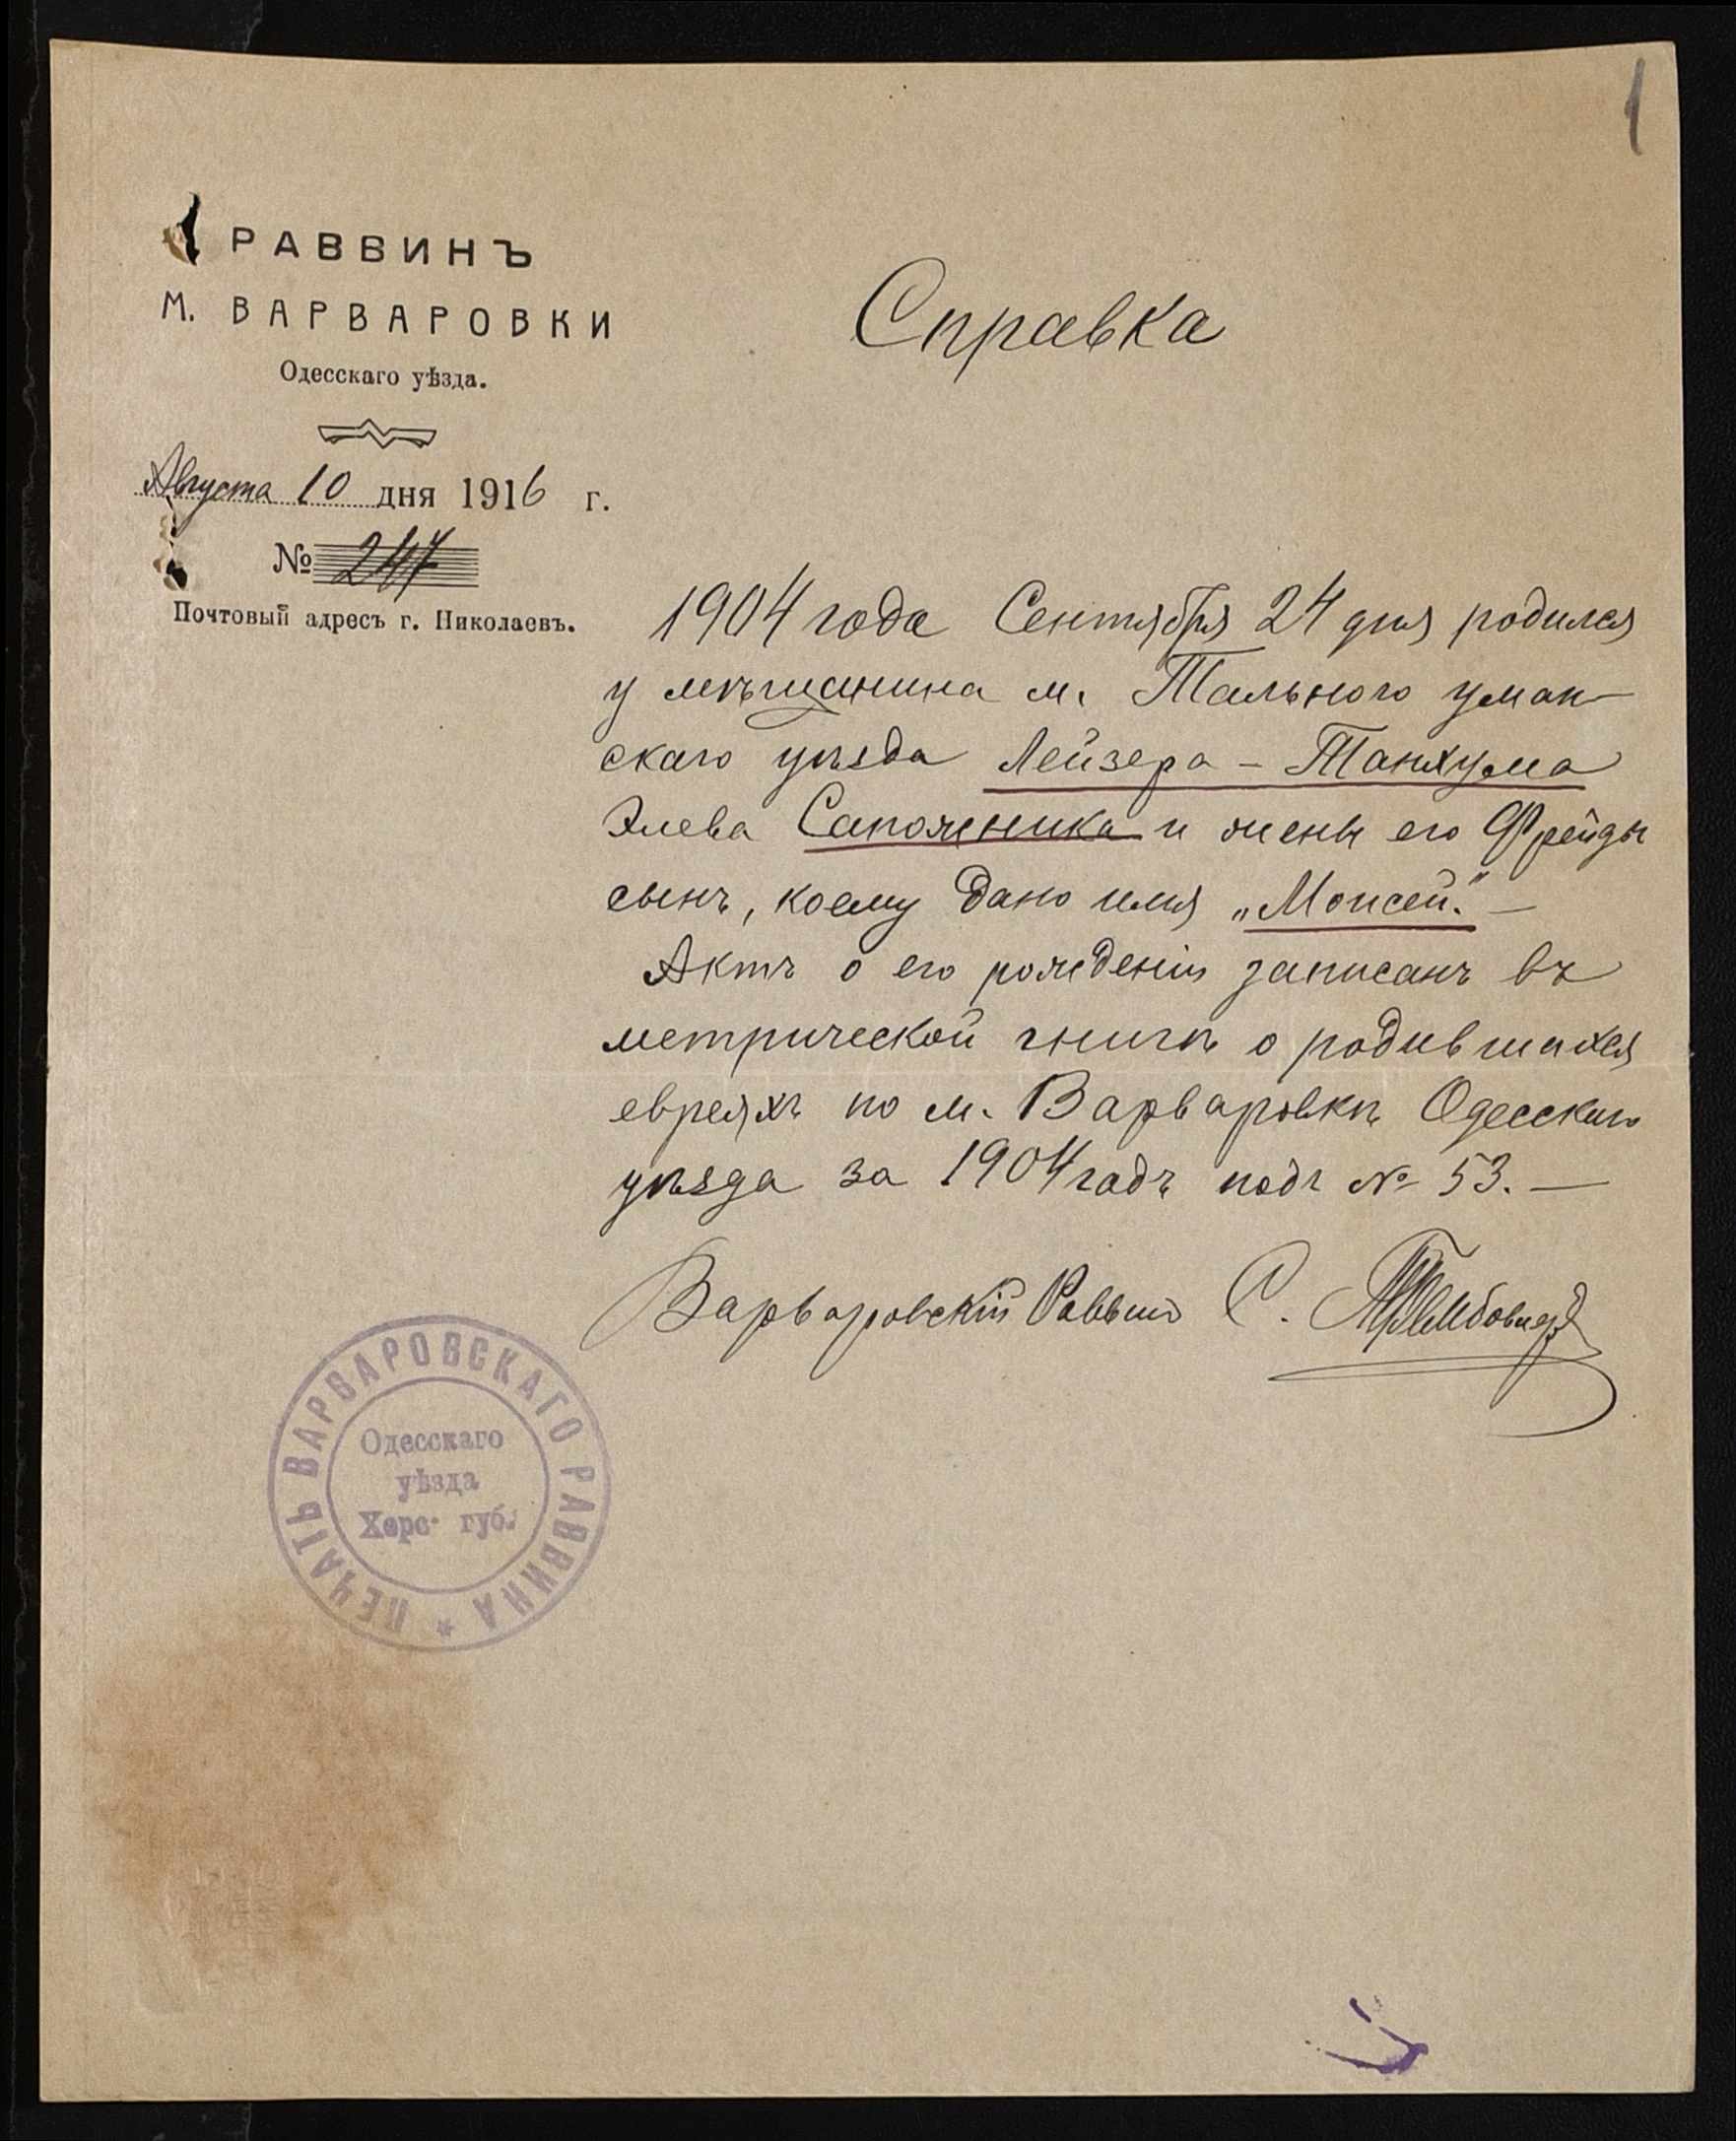 1
РАВВИНЪ
М. ВАРВАРОВКИ
Одесскаго уѣзда.
Августа 10 дня 1916 г.
№ 247
Почтовый адресъ г. Николаевъ.
Справка
1904 года Сентября 24 дня родился
у мѣщанина м. Тального уман-
скаго уѣзда Лейзера - Танхума
Элева Сапожника и жены его Фрейды
сынъ, коему дано имя „Моисей." —
Актъ о его рожденіи записанъ въ
метрической книгѣ о родившихся
евреяхъ по м. Варваровкѣ Одесскаго
уѣзда за 1904 годъ подъ № 53. —
Варваровскій Раввинъ С.
ПЕЧАТЬ ВАРВАРОВСКАГО РАВВИНА *
Одесскаго
уѣзда
Херс. губ.